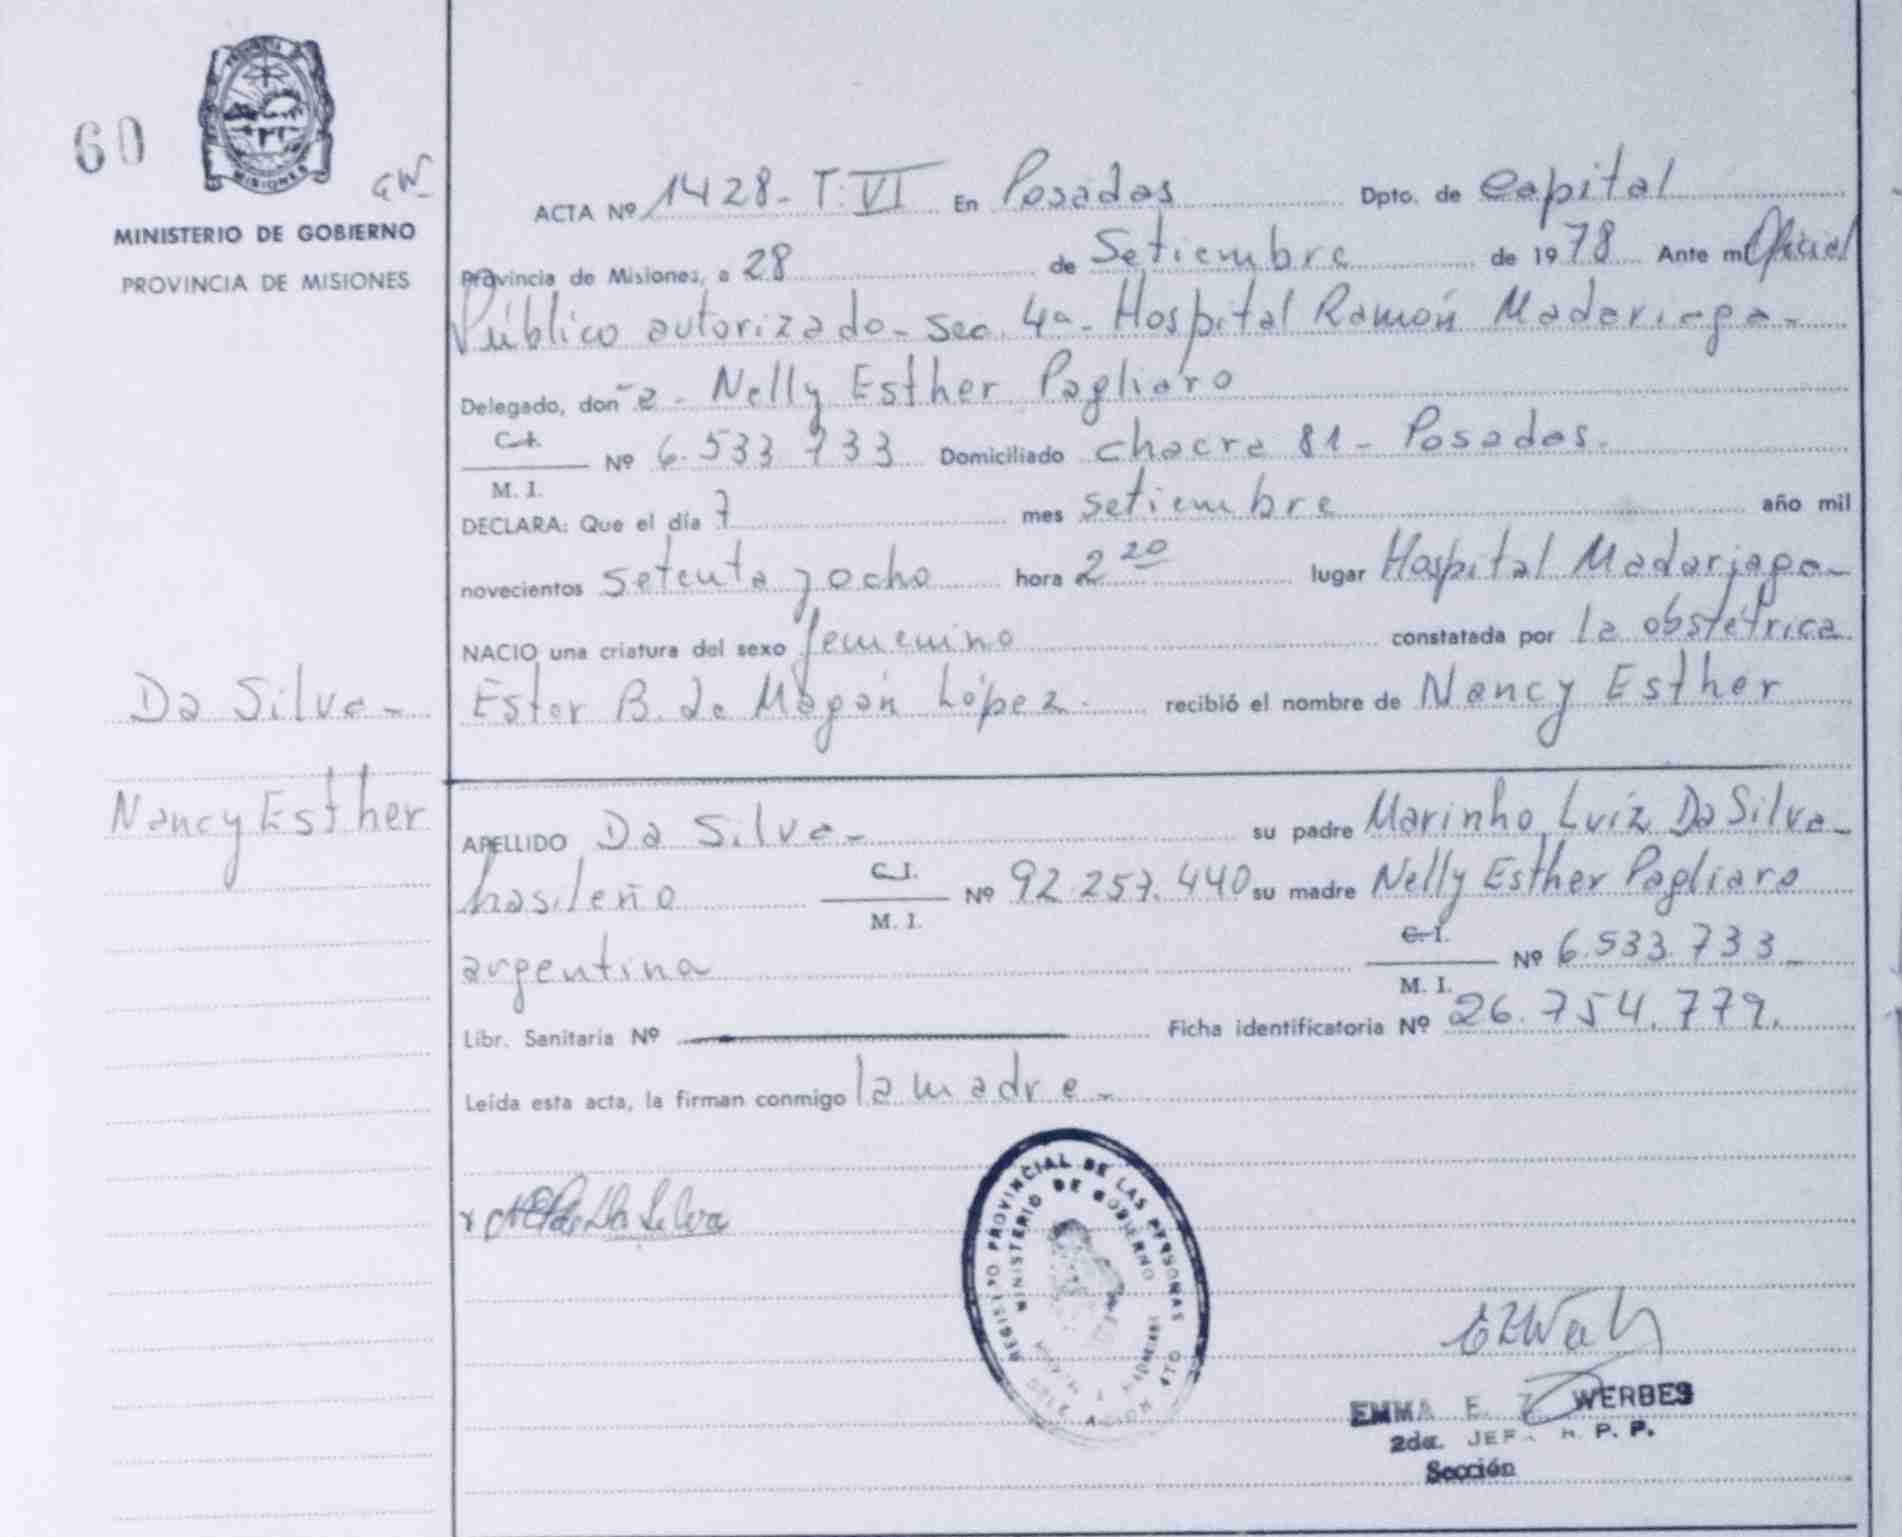 60
PROVINCIA DE
MISIONES
GW
MINISTERIO DE GOBIERNO
PROVINCIA DE MISIONES
Da Silva-
Nancy Esther
ACTA Nº 1428- T: VI En Posadas Dpto. de Capital
Provincia de Misiones, a 28 de Setiembre de 1978 Ante mi Oficial
Público autorizado- Sec. 4a- Hospital Ramón Madariaga-
Delegado, don~a- Nelly Esther Pagliaro
C.I.
Nº 6.533 733 Domiciliado chacra 81- Posadas.
M. I.
DECLARA: Que el día 7 mes setiembre año mil
novecientos setenta y ocho hora 2 20 lugar Hospital Madariaga-
NACIO una criatura del sexo femenino constatada por la obstétrica
Ester B. de Magán López- recibió el nombre de Nancy Esther
APELLIDO Da Silva- su padre Marinho Luiz Da Silva-
C.I.
brasileño Nº 92.257.440 su madre Nelly Esther Pagliaro
M. I.
C.I.
argentina Nº 6.533.733-
M. I.
Libr. Sanitaria Nº Ficha identificatoria Nº 26.754.779.
Leída esta acta, la firman conmigo la madre-
Da Silva
REGISTRO PROVINCIAL DE LAS PERSONAS
MINISTERIO DE GOBIERNO
EMMA E. Z WERBES
2da. JEFA R. P. P.
Sección